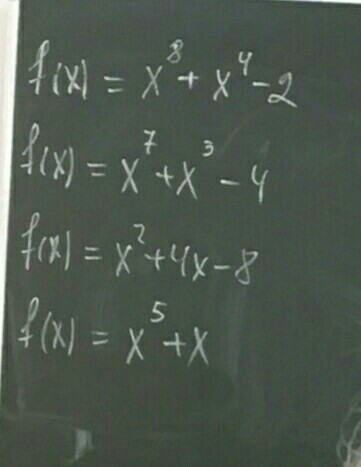 f(x) = x⁸ + x⁴ - 2
f(x) = x⁷ + x³ - 4
f(x) = x² + 4x - 8
f(x) = x⁵ + x